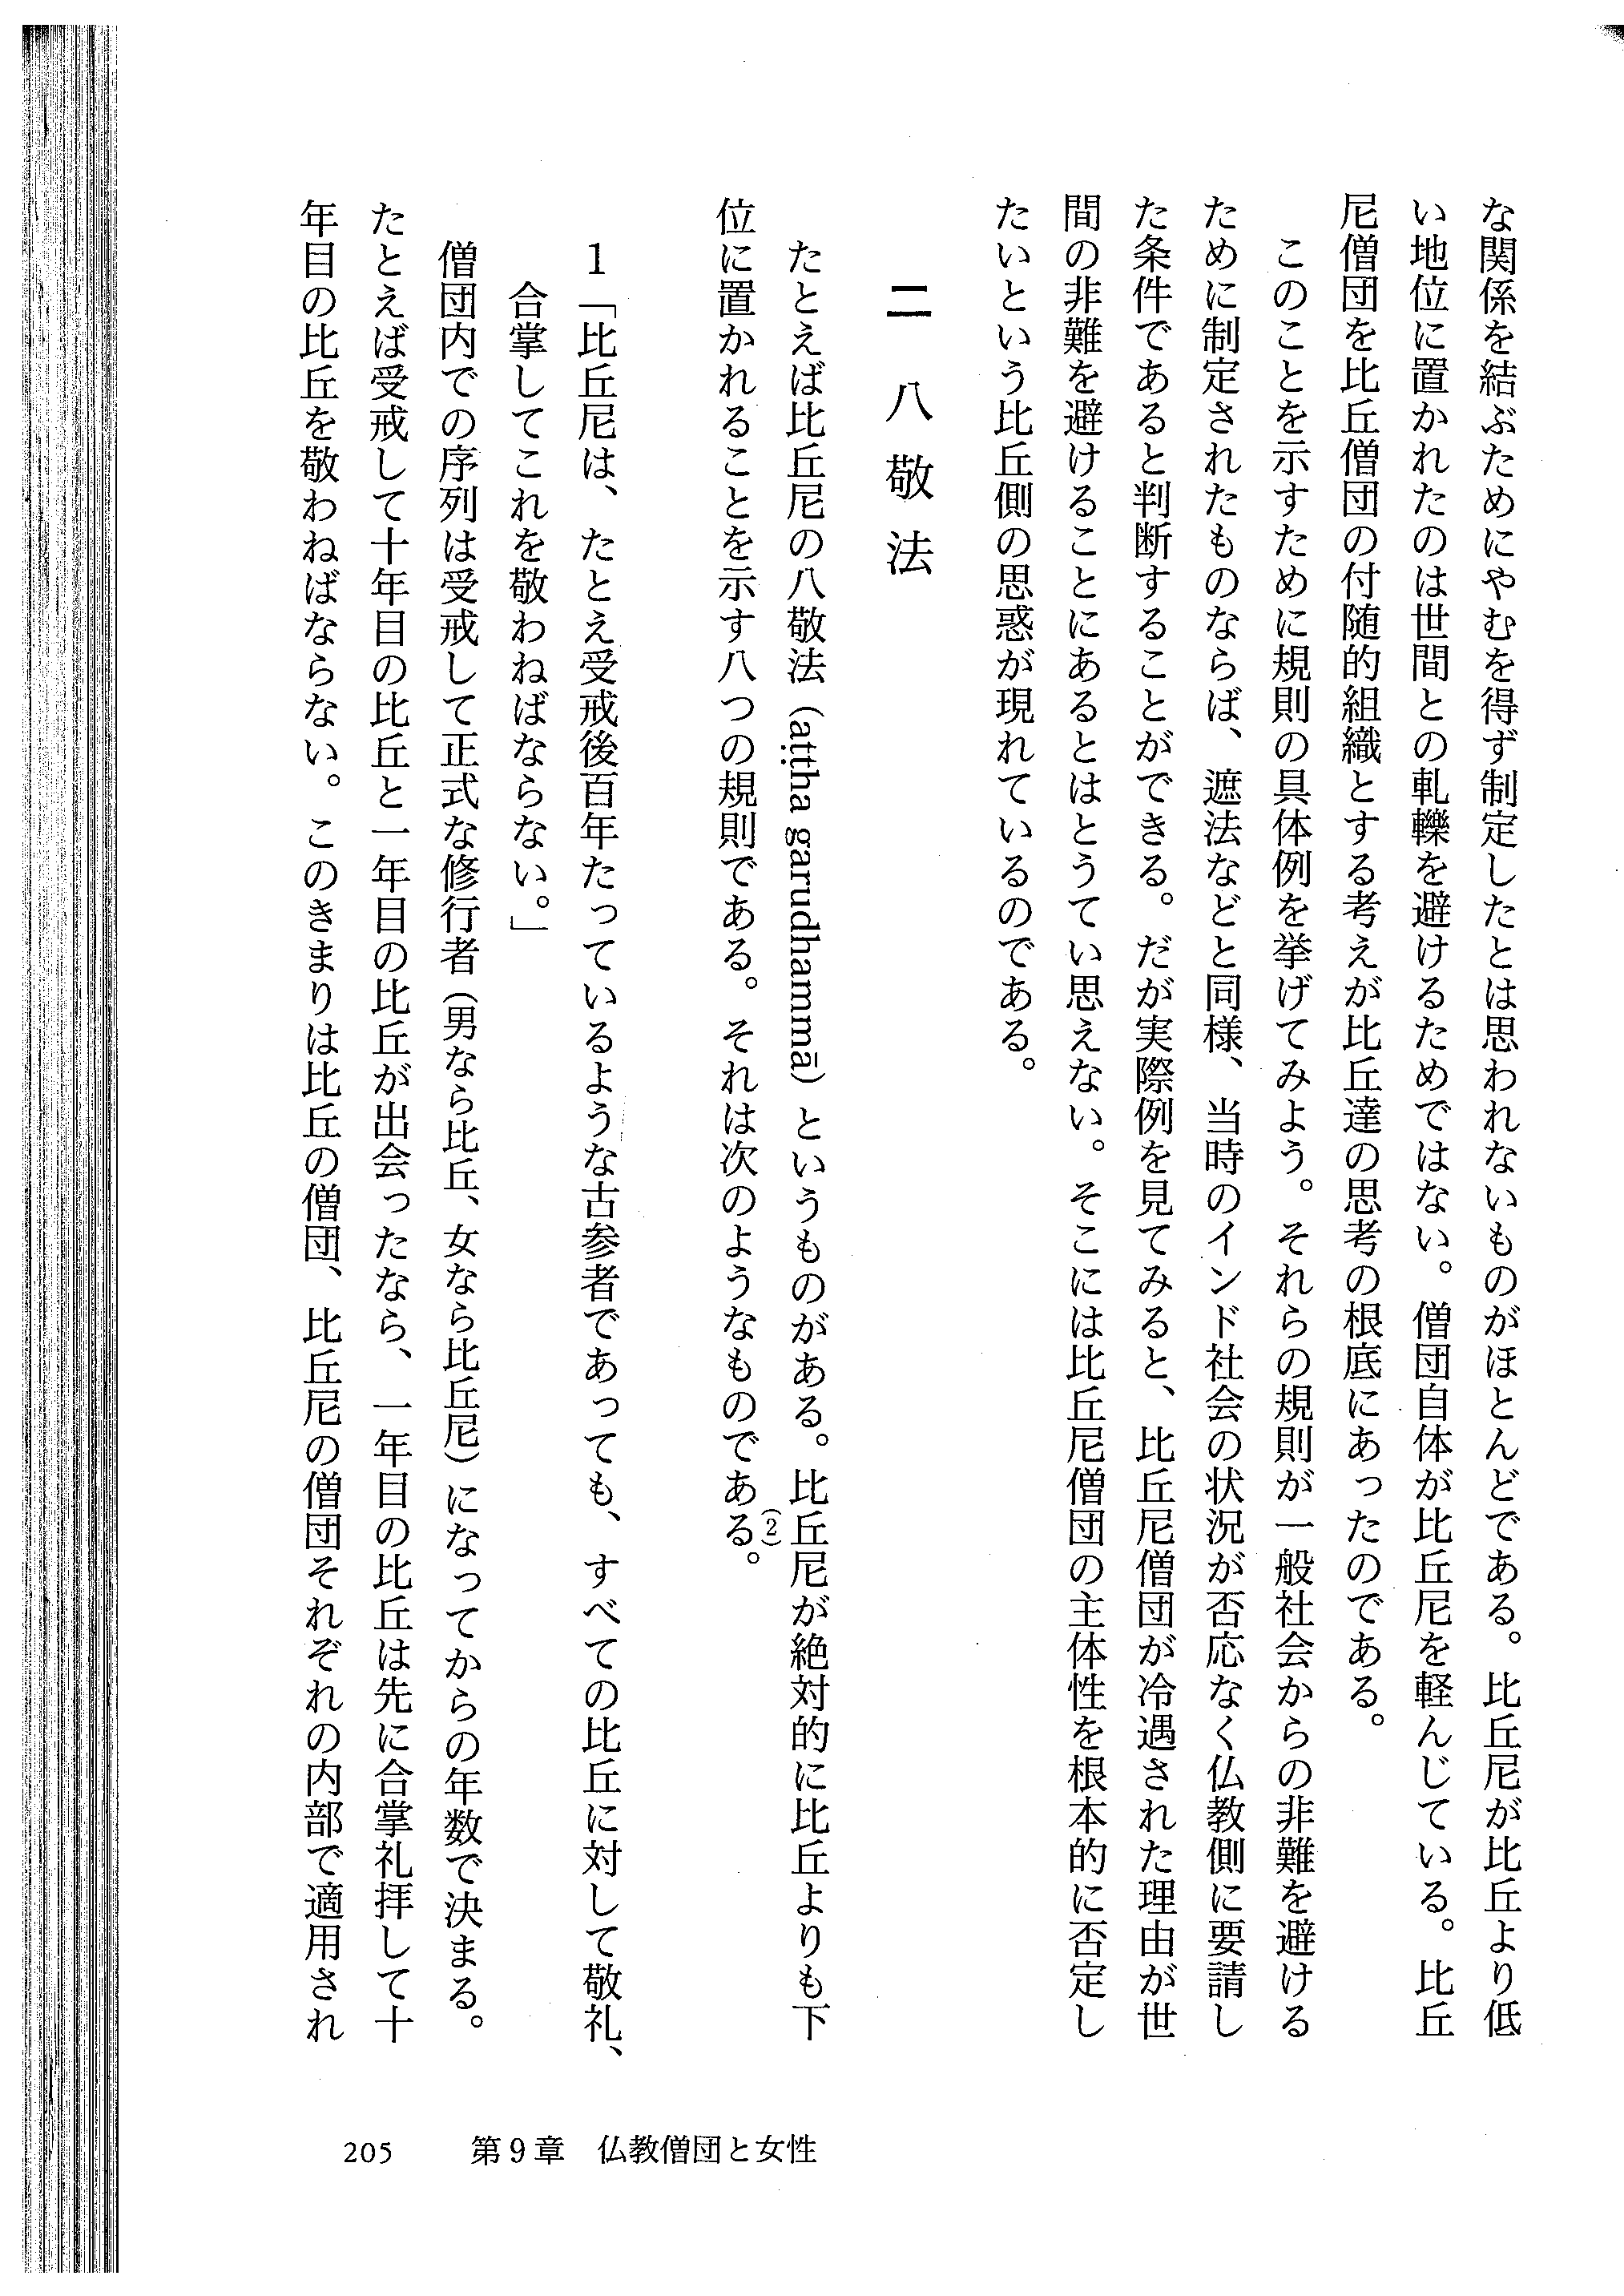 な関係を結ぶためにやむを得ず制定したとは思われないものがほとんどである。比丘尼が比丘より低
い地位に置かれたのは世間との軋轢を避けるためではない。僧団自体が比丘尼を軽んじている。比丘
尼僧団を比丘僧団の付随的組織とする考えが比丘達の思考の根底にあったのである。
このことを示すために規則の具体例を挙げてみよう。それらの規則が一般社会からの非難を避ける
ために制定されたものならば、遮法などと同様、当時のインド社会の状況が否応なく仏教側に要請し
た条件であると判断することができる。だが実際例を見てみると、比丘尼僧団が冷遇された理由が世
間の非難を避けることにあるとはとうてい思えない。そこには比丘尼僧団の主体性を根本的に否定し
たいという比丘側の思惑が現れているのである。
二 八敬法
たとえば比丘尼の八敬法（aṭṭha garudhammā）というものがある。比丘尼が絶対的に比丘よりも下
位に置かれることを示す八つの規則である。それは次のようなものである。(2)
1「比丘尼は、たとえ受戒後百年たっているような古参者であっても、すべての比丘に対して敬礼、
合掌してこれを敬わねばならない。」
僧団内での序列は受戒して正式な修行者（男なら比丘、女なら比丘尼）になってからの年数で決まる。
たとえば受戒して十年目の比丘と一年目の比丘が出会ったなら、一年目の比丘は先に合掌礼拝して十
年目の比丘を敬わねばならない。このきまりは比丘の僧団、比丘尼の僧団それぞれの内部で適用され
205 第9章 仏教僧団と女性